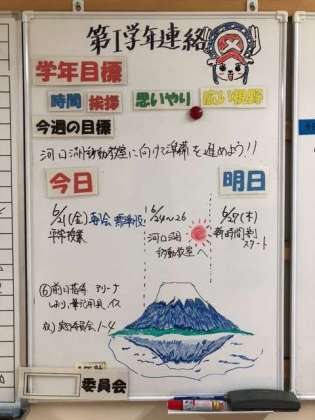 第1学年連絡
学年目標
時間 挨拶 思いやり 広い視野
今週の目標
河口湖移動教室に向けて準備を進めよう!!
今日 明日
6/21(金) 再会 標準服
平常授業
6/24~26
河口湖
移動教室へ
6/27(木)
新時間割
スタート
⑥前日指導 アリーナ
しおり、筆記用具、イス
放) 実行委員会 1-4
委員会